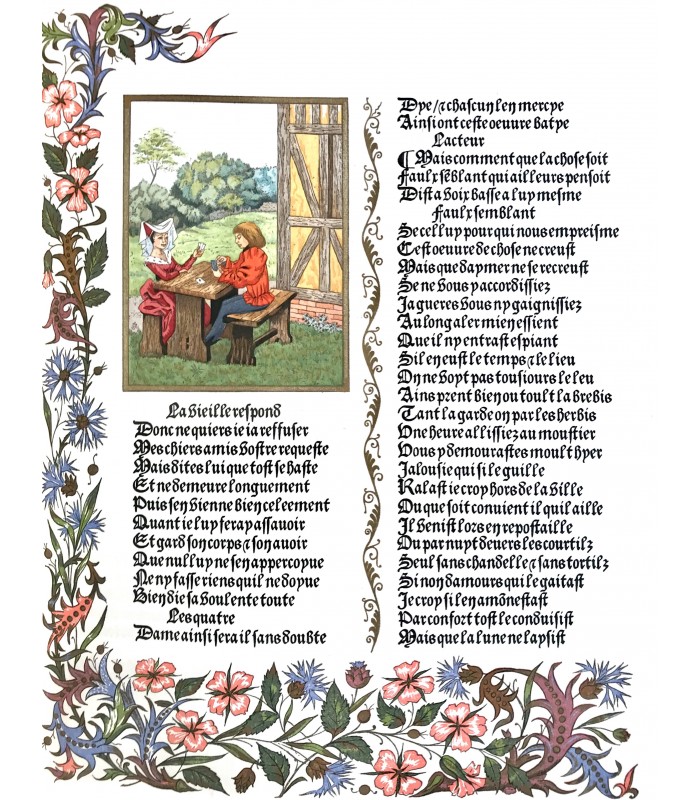 La vieille respond
Donc ne quiers ie ia reffuser
Mes chiers amis vostre requeste
Mais dites lui que tost se haste
Et ne demeure longuement
Puis sen vienne bien celeement
Quant ie luy feray assauoir
Et gard son corps ⁊ son auoir
Que nul luy ne sen appercoyue
Ne ny fasse riens quil ne doyue
Bien die sa voulente toute
Les quatre
Dame ainsi sera il sans doubte
Dye /⁊ chascun len mercye
Ainsi ont ceste oeuure batye
Lacteur
¶ Mais comment que la chose soit
Faulx sēblant qui ailleurs pensoit
Dist a voix basse a luy mesme
Faulx semblant
Se celluy pour qui nous empreisme
Cest oeuure de chose ne creust
Mais que daymer ne se recreust
Se ne vous y accordissiez
Ja gueres vous ny gaignissiez
Au long aler mien essient
Que il ny entrast espiant
Sil en eust le temps ⁊ le lieu
On ne voyt pas tousiours le leu
Ains prent bien ou toult la brebis
Tant la garde on par les herbis
Vne heure allissiez au moustier
Vous y demourastes moult hyer
Jalousie qui si le guille
Ralast ie croy hors de la ville
Du que soit conuient il quil aille
Il venist lors en repostaille
Du par nuyt deuers les courtilz
Seul sans chandelle ⁊ sans tortilz
Sinon damours qui le gaitast
Je croy sil en amōnestast
Par confort tost le conduisist
Mais que la lune ne laysist